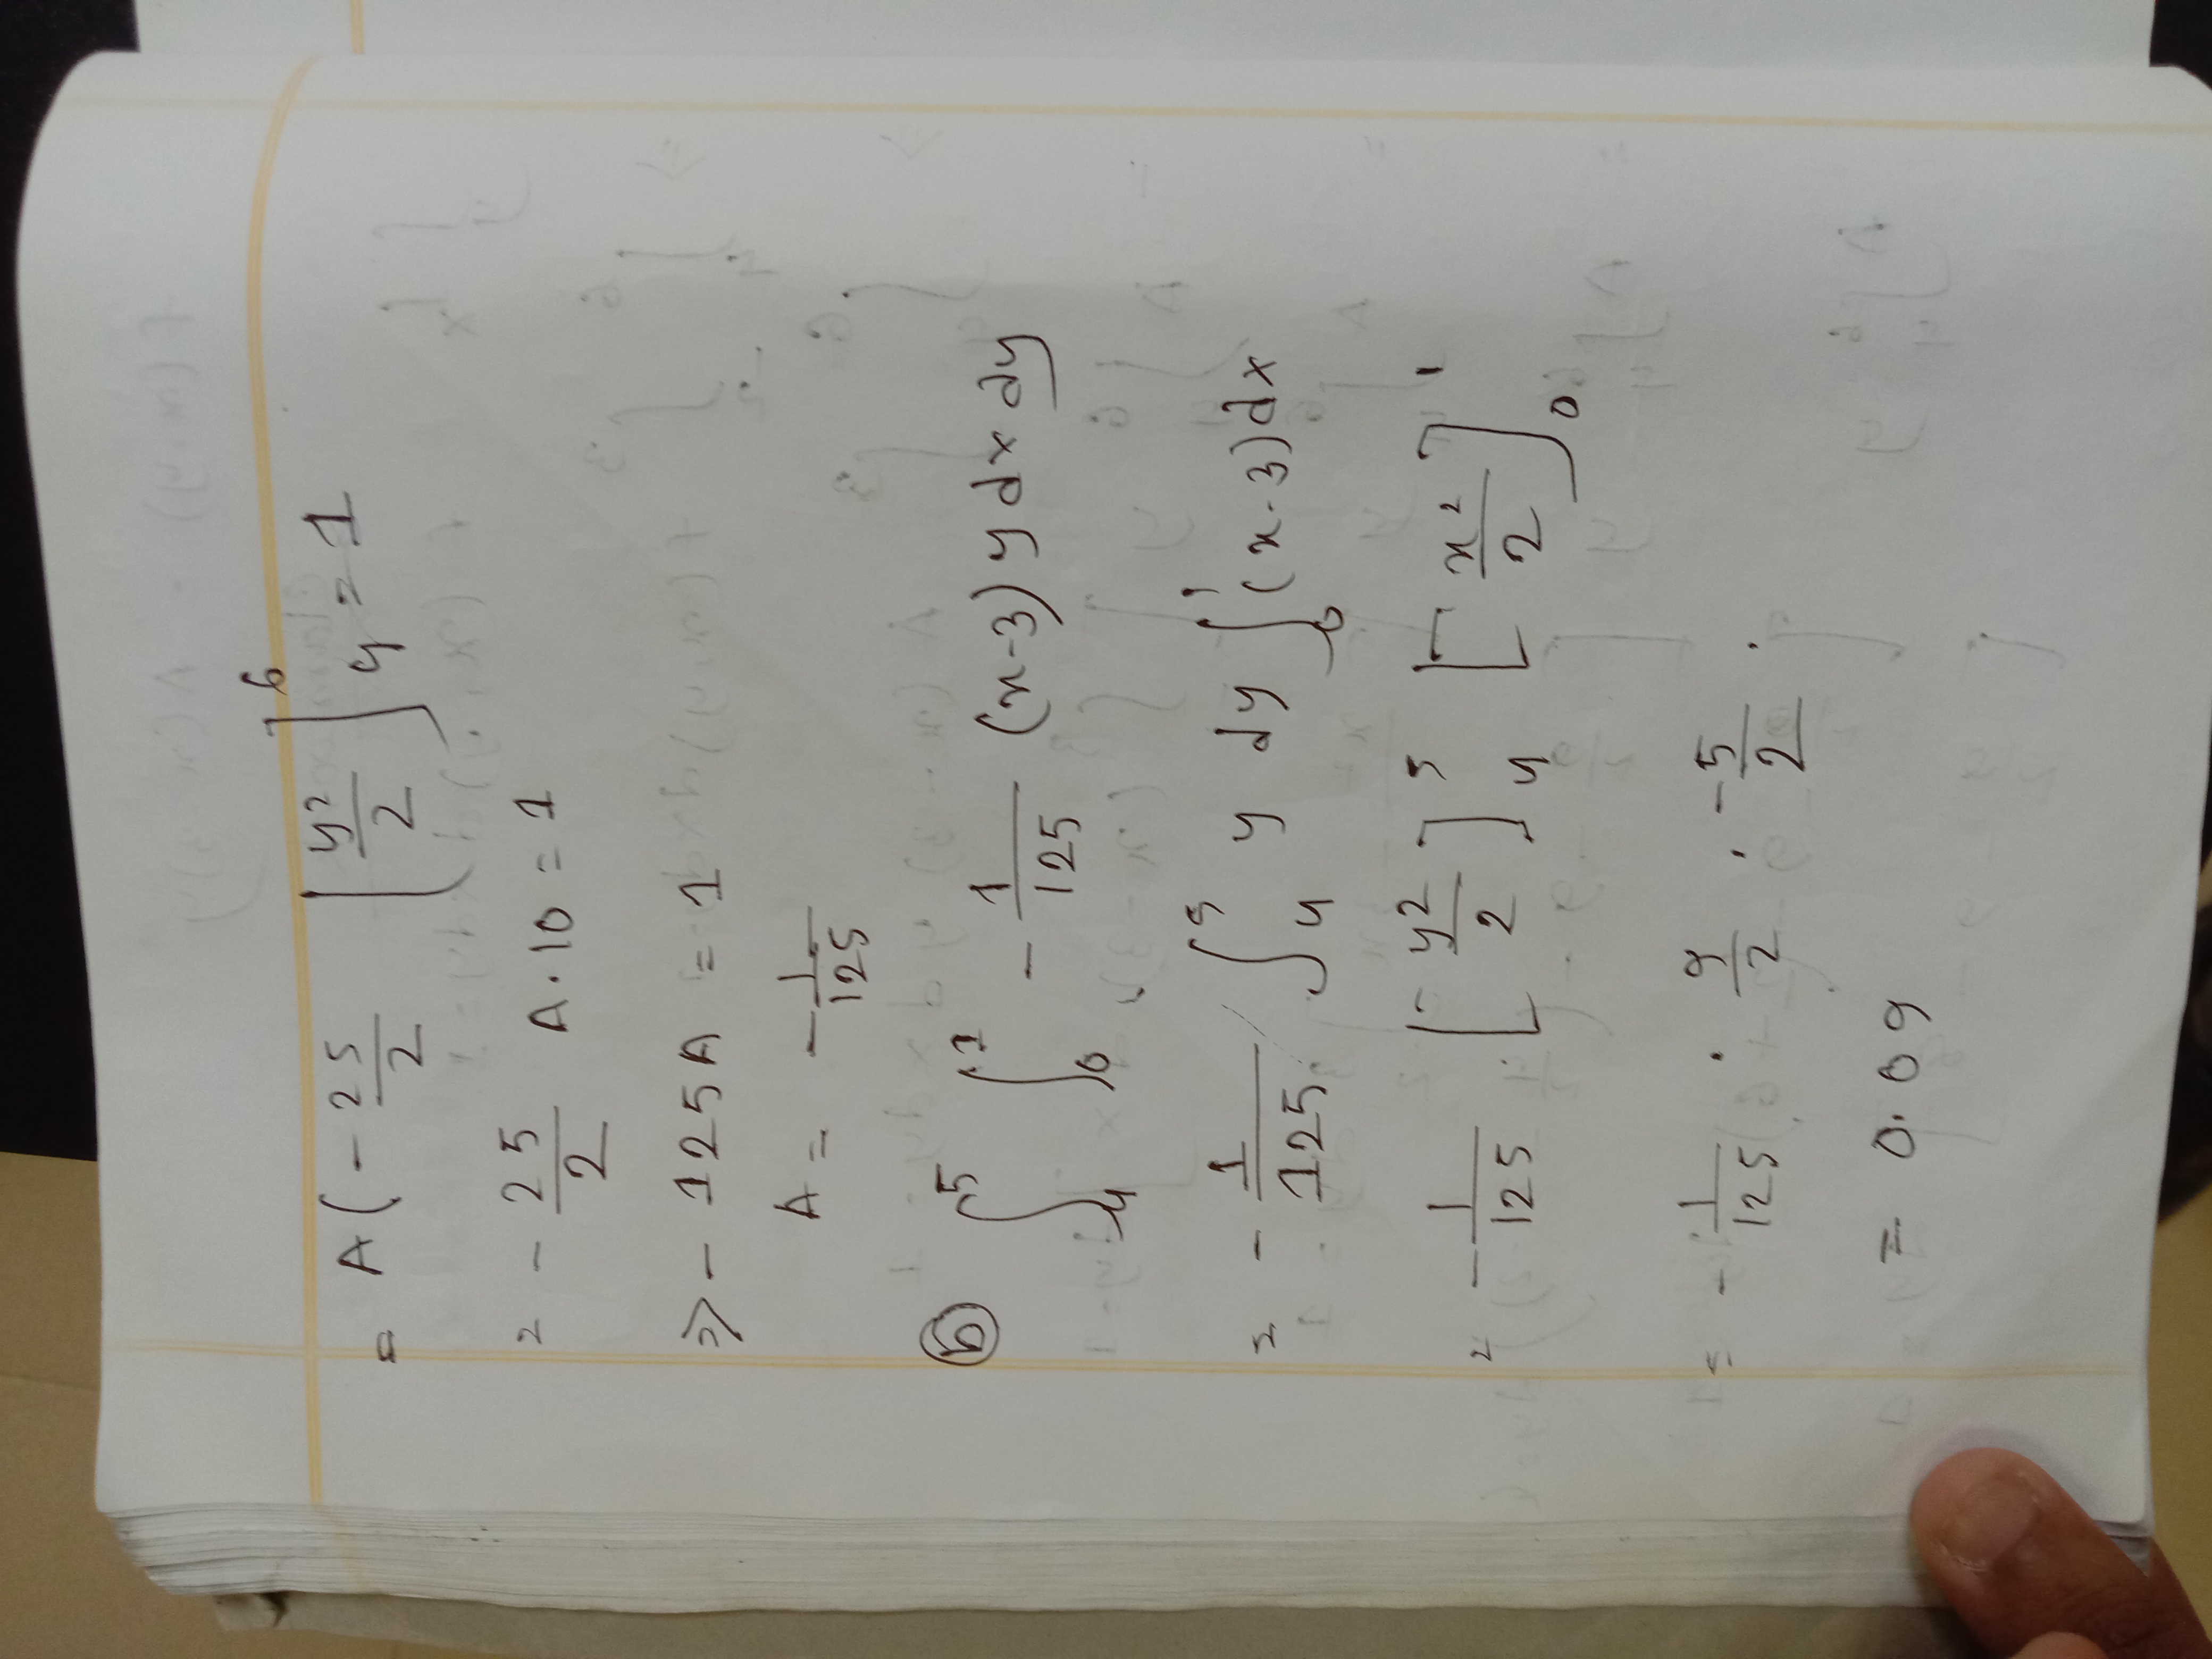 = A(-25/2 [y²/2]⁶₄ = 1
= -25/2 A.10 = 1
=> -125A = 1
A = -1/125
(b) ∫₄⁵ ∫₀¹ -1/125 (x-3) y dx dy
= -1/125 ∫₄⁵ y dy ∫₀¹ (x-3) dx
= -1/125 [y²/2]⁵₄ [x²/2]¹₀
= -1/125 . 9/2 . -5/2 .
= 0.09